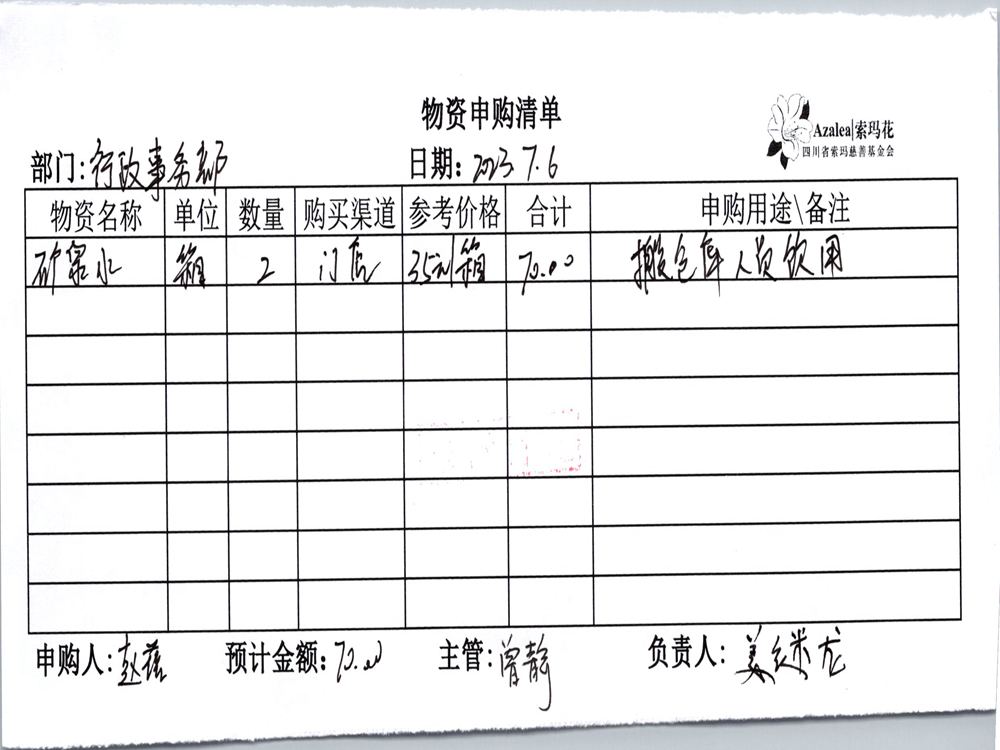 物资申购清单
Azalea|索玛花
四川省索玛慈善基金会
部门:行政事务部 日期:2023.7.6
物资名称 单位 数量 购买渠道 参考价格 合计 申购用途\备注
矿泉水 箱 2 门店 35元/箱 70.00 搬仓库人员饮用
申购人: 预计金额:70.00 主管:曾静 负责人: